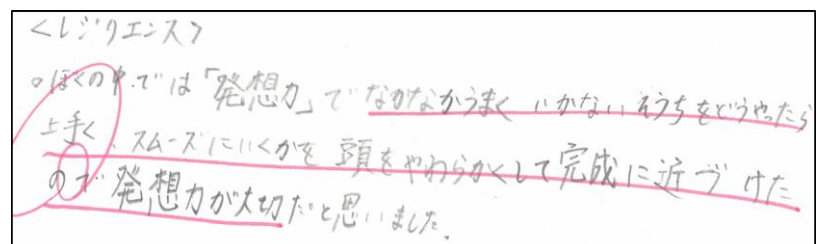 <レジリエンス>
。ぼくの中では「発想力」でなかなかうまくいかないそうちをどうやったら
上手く、スムーズにいくかを頭をやわらかくして完成に近づけた
ので発想力が大切だと思いました。